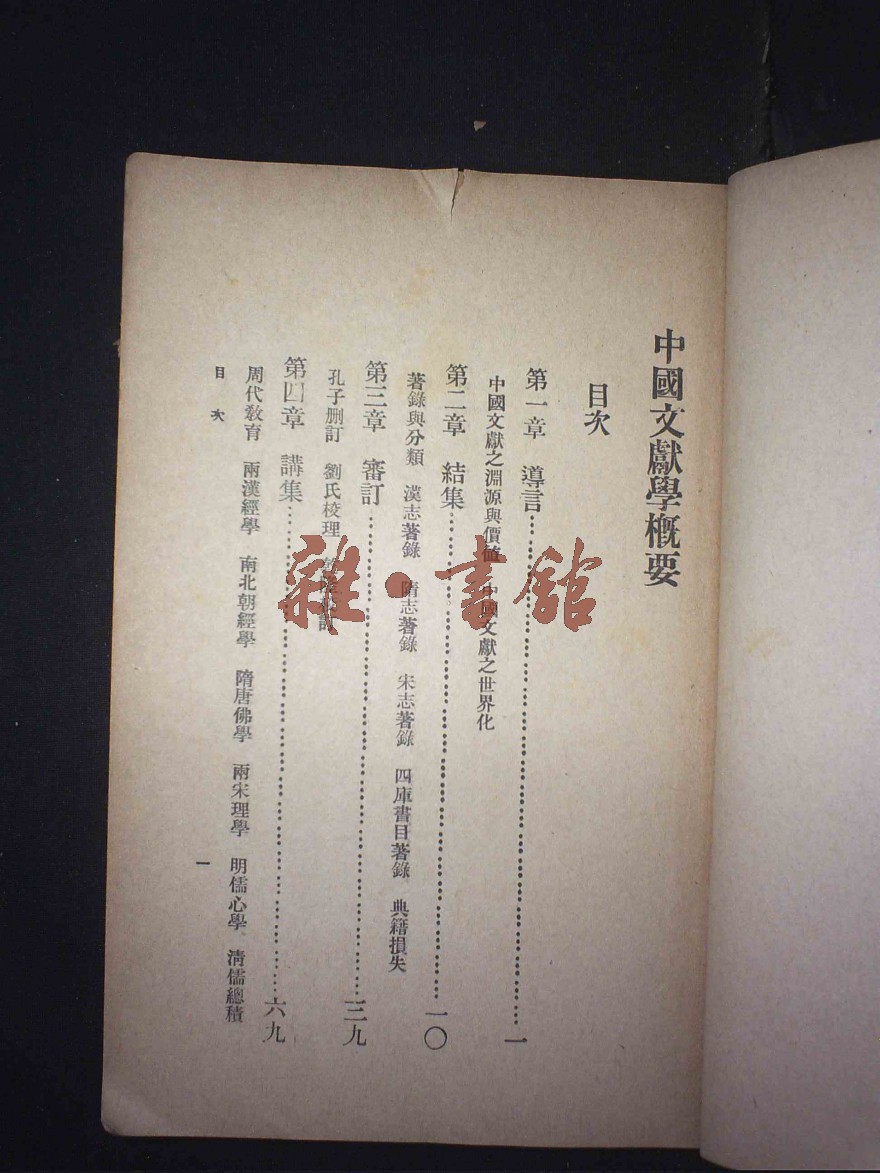 中國文獻學槪要
目次
第一章 導言⋯⋯⋯⋯⋯⋯⋯⋯⋯⋯一
中國文獻之淵源與價値 中國文獻之世界化
第二章 結集⋯⋯⋯⋯⋯⋯⋯⋯⋯⋯一〇
著錄與分類 漢志著錄 隋志著錄 宋志著錄 四庫書目著錄 典籍損失
第三章 審訂⋯⋯⋯⋯⋯⋯⋯⋯⋯⋯三九
孔子删訂 劉氏校理
第四章 講集⋯⋯⋯⋯⋯⋯⋯⋯⋯⋯六九
周代敎育 兩漢經學 南北朝經學 隋唐佛學 兩宋理學 明儒心學 清儒總積
目次
一
雜·書館